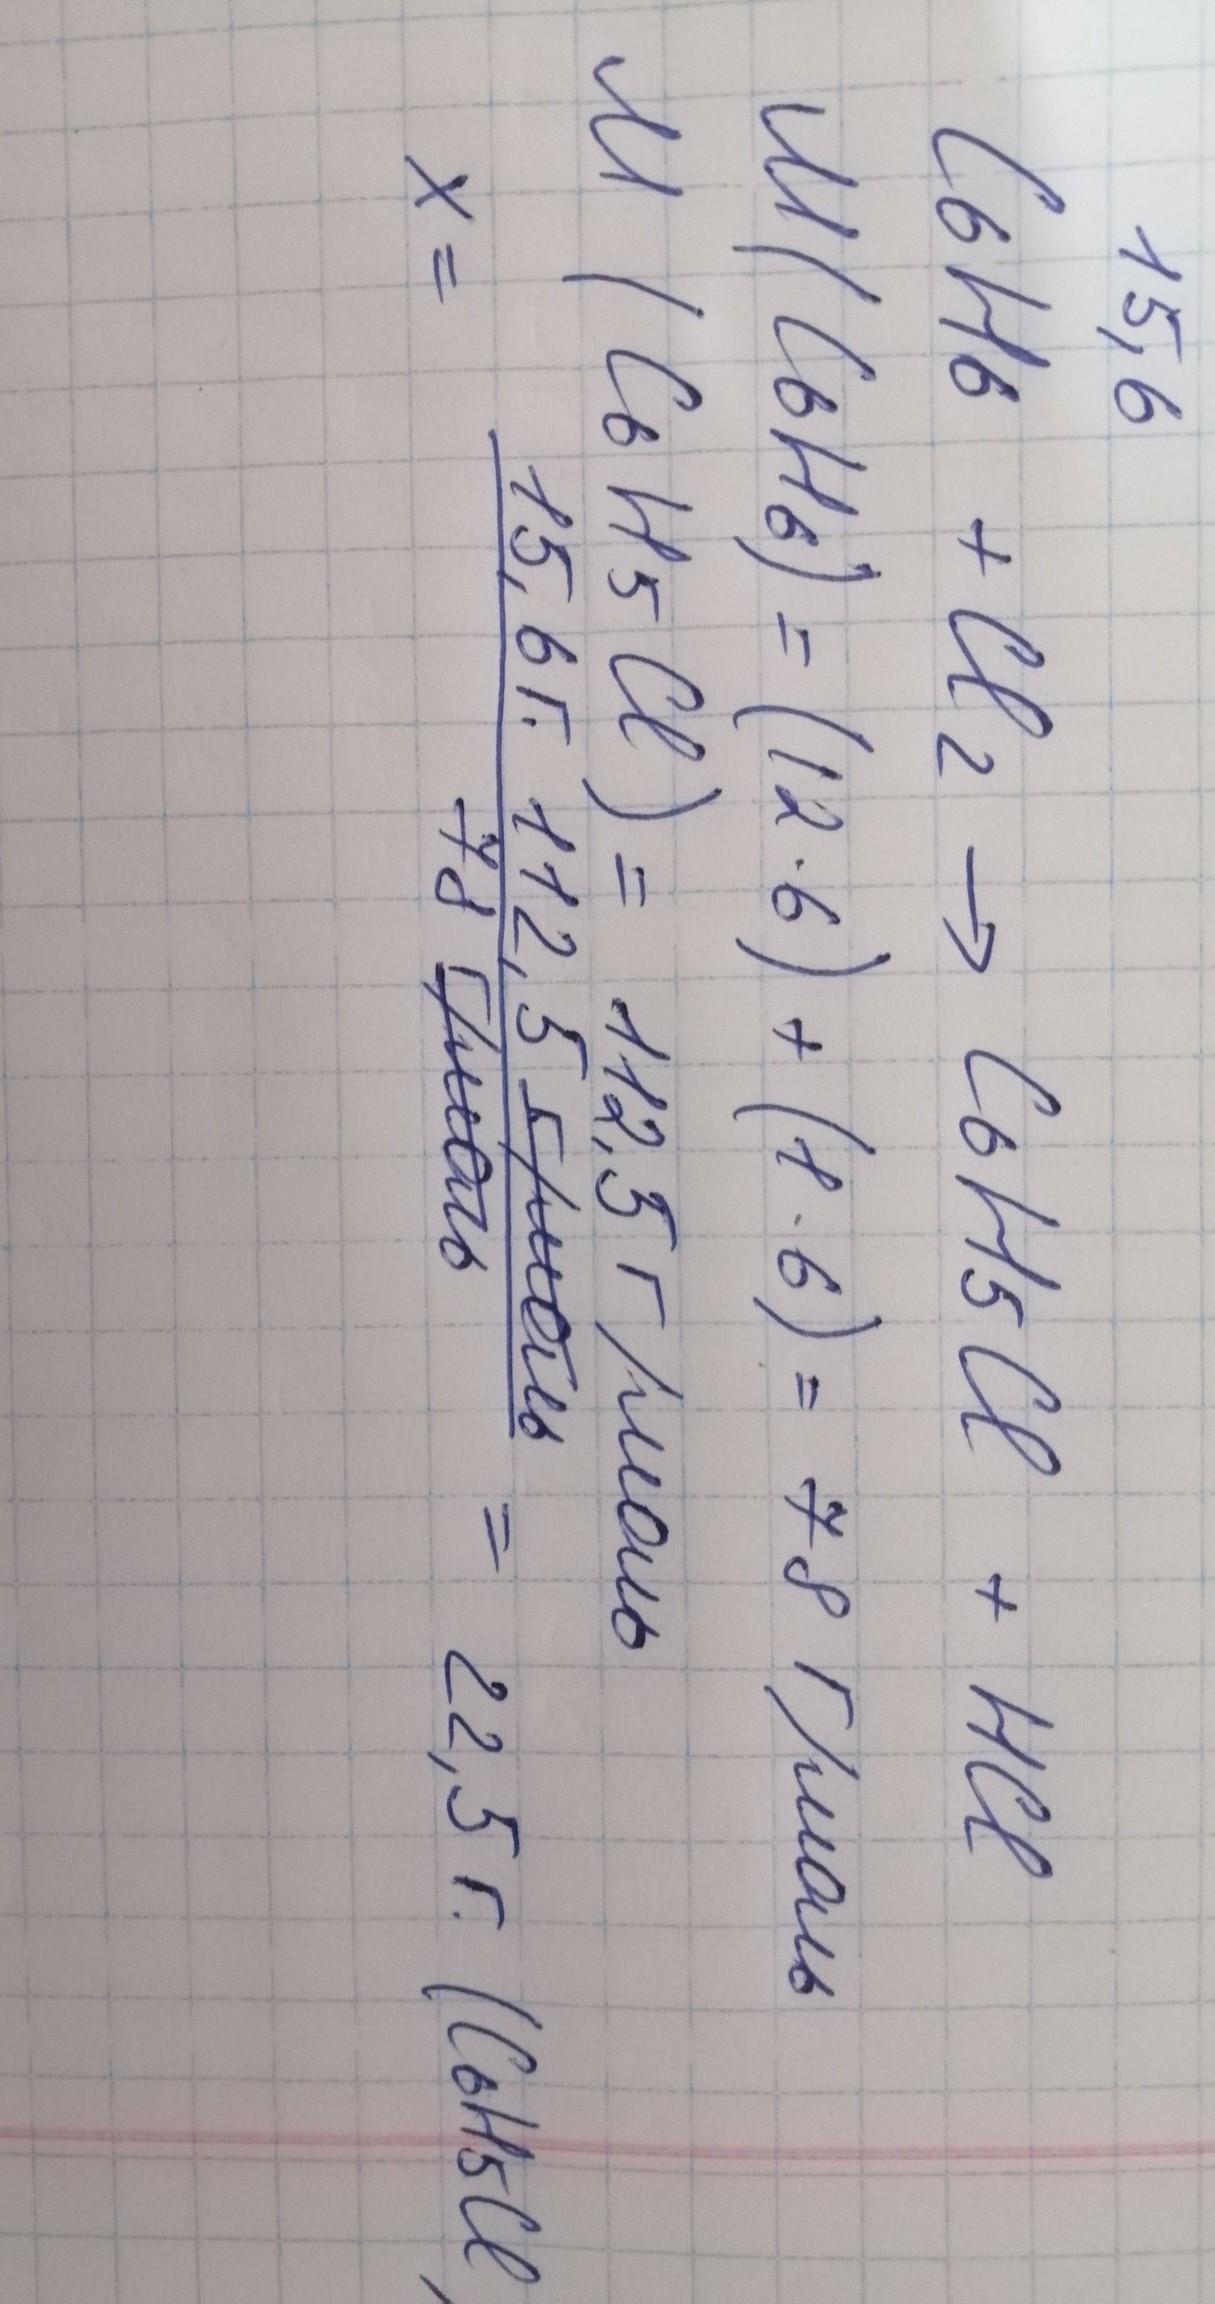 15,6
C6H6 + Cl2 → C6H5Cl + HCl
M(C6H6) = (12·6) + (1·6) = 78 г/моль
M (C6H5Cl) = 112,5 г/моль
x = 15,6 г. 112,5 г/моль / 78 г/моль = 22,5 г. (C6H5Cl)